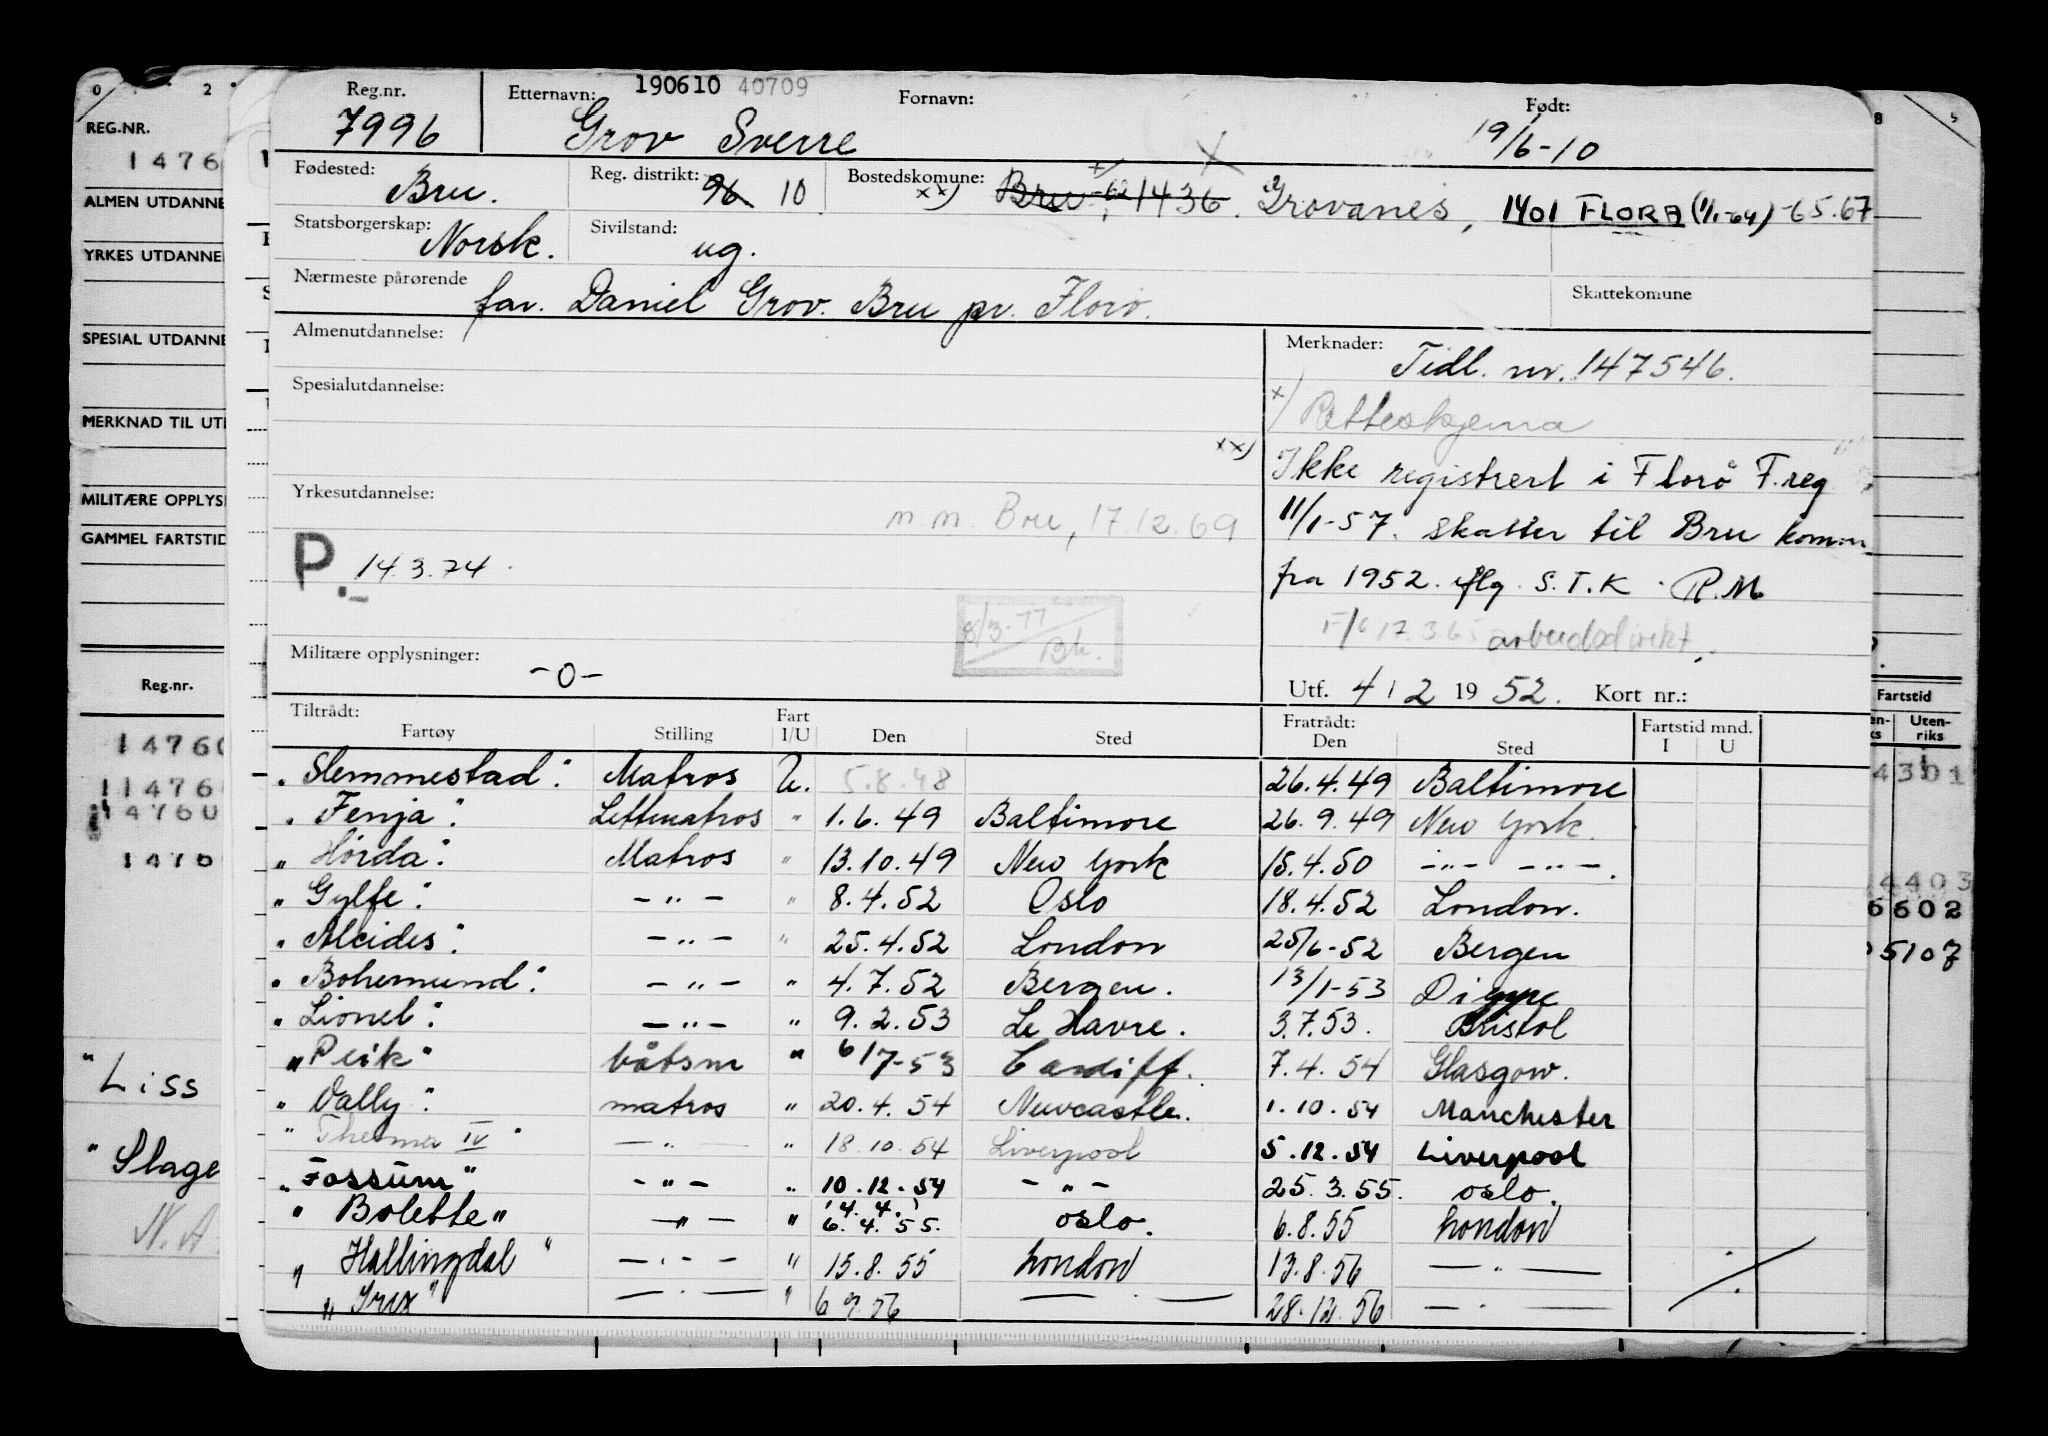 Reg.nr. Etternavn: 190610 40709 Fornavn: Født:
7996 Grov Sverre 19/6-10
Fødested: Bru. Reg. distrikt: 96 10 Bostedskomune: xx) Bru -62 1436. Grovanes, 1401 FLORA (1/1-64) -65.67
Statsborgerskap: Norsk. Sivilstand: ug.
Nærmeste pårørende far. Daniel Grov. Bru pr. Florø. Skattekomune
Almenutdannelse:
Spesialutdannelse:
Yrkesutdannelse: m.m. Bru, 17.12.69
P. 14.3.74.
8/3-77
Bh.
Militære opplysninger: -0-
Merknader: Tidl. nr. 147546.
x) Retteskjema
xx) Ikke registrert i Florø F.reg
11/1-57. skatter til Bru komm
fra 1952. iflg. S.T.K. R.M
17.3.65 arbeidsdirekt.
Utf. 4/2 1952. Kort nr.:
Tiltrådt: Fartøy Stilling Fart I/U Den Sted Fratrådt: Den Sted Fartstid mnd. I U
"Slemmestad" Matros U. 5.8.48 26.4.49 Baltimore
"Fenja" Lettmatros " 1.6.49 Baltimore 26.9.49 New York.
"Hörda" Matros " 13.10.49 New York 15.4.50 -"- -"-.
"Gylfe" -"- " 8.4.52 Oslo 18.4.52 London.
"Alcides" -"- " 25.4.52 London 25/6-52 Bergen
"Bohemund" -"- " 4.7.52 Bergen. 13/1-53 Dieppe
"Lionel" -"- " 9.2.53 Le Havre. 3.7.53. Bristol
"Peik" båtsm " 6/7-53 Cardiff. 7.4.54 Glasgow.
"Vally" matros " 20.4.54 Newcastle. 1.10.54 Manchester
"Therma IV" -"- " 18.10.54 Liverpool 5.12.54 Liverpool
"Fossum" -"- " 10.12.54 -"- 25.3.55. Oslo.
"Bolette" -"- " 6.4.55. Oslo. 6.8.55 London
"Hallingdal" -"- " 15.8.55 London 13.8.56 -"-
"Irix" -"- " 6.9.56 -"- 28.12.56 -"-
0 2
REG.NR.
1476
ALMEN UTDANNE
YRKES UTDANNE
SPESIAL UTDANNE
MERKNAD TIL UT
MILITÆRE OPPLYS
GAMMEL FARTSTID
Reg.nr.
14760
114760
14760
1476
"Liss
"Slage
N.A.
8 5
Fartstid
en-ks Uten-riks
4301
4403
6602
5107